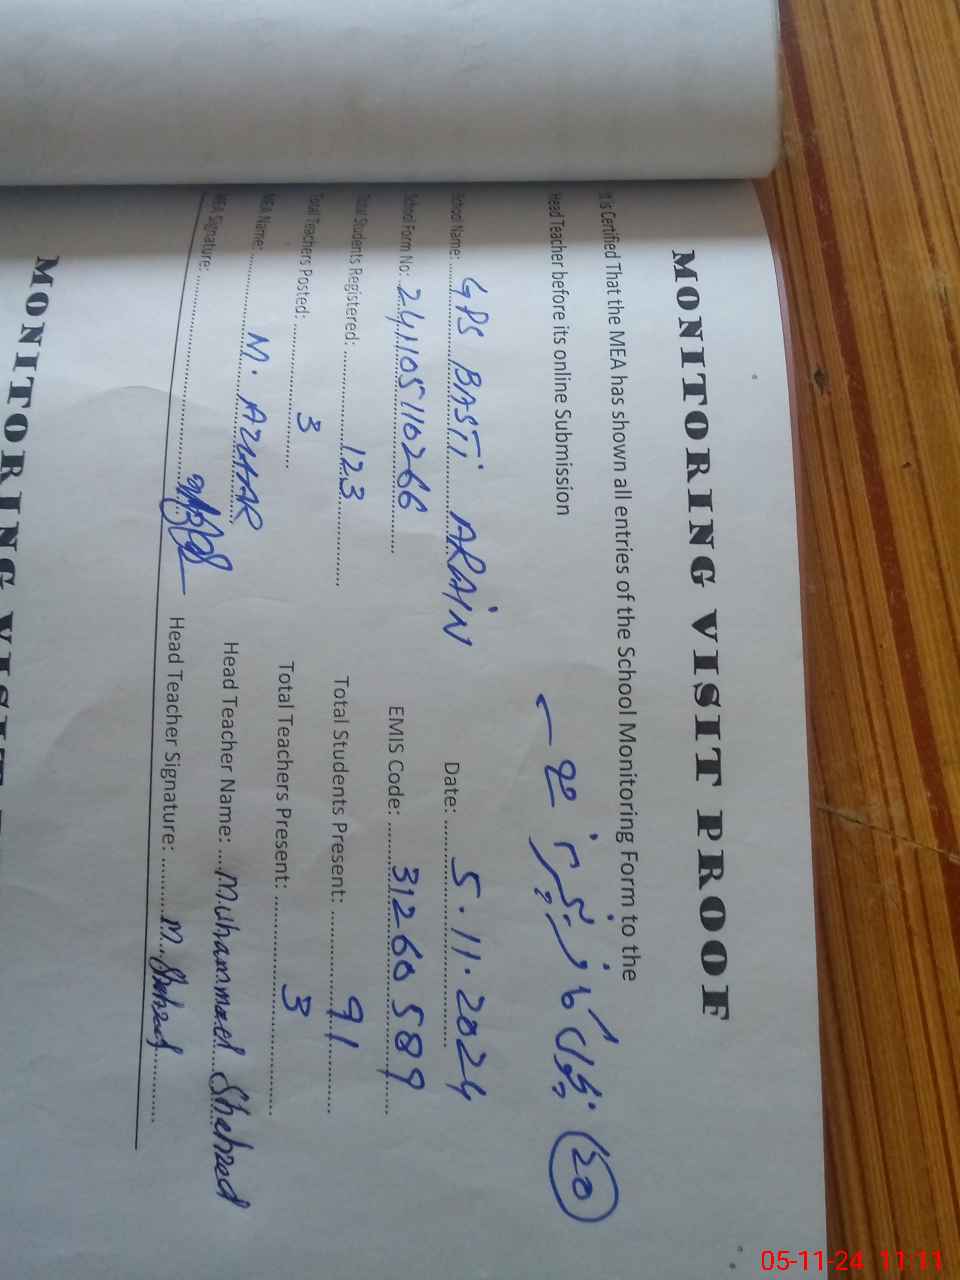 MONITORING VISIT PROOF
It is Certified That the MEA has shown all entries of the School Monitoring Form to the
Head Teacher before its online Submission
20
School Name: GPS BASTI ARAIN Date: 5.11.2024
School Form No: 241105110266 EMIS Code: 31260589
Total Students Registered: 123 Total Students Present: 91
Total Teachers Posted: 3 Total Teachers Present: 3
MEA Name: M. AZHAR Head Teacher Name: Muhammad Shehzad
MEA Signature: Head Teacher Signature: M. Shehzad
MONITORING VISIT
05-11-24 11:11